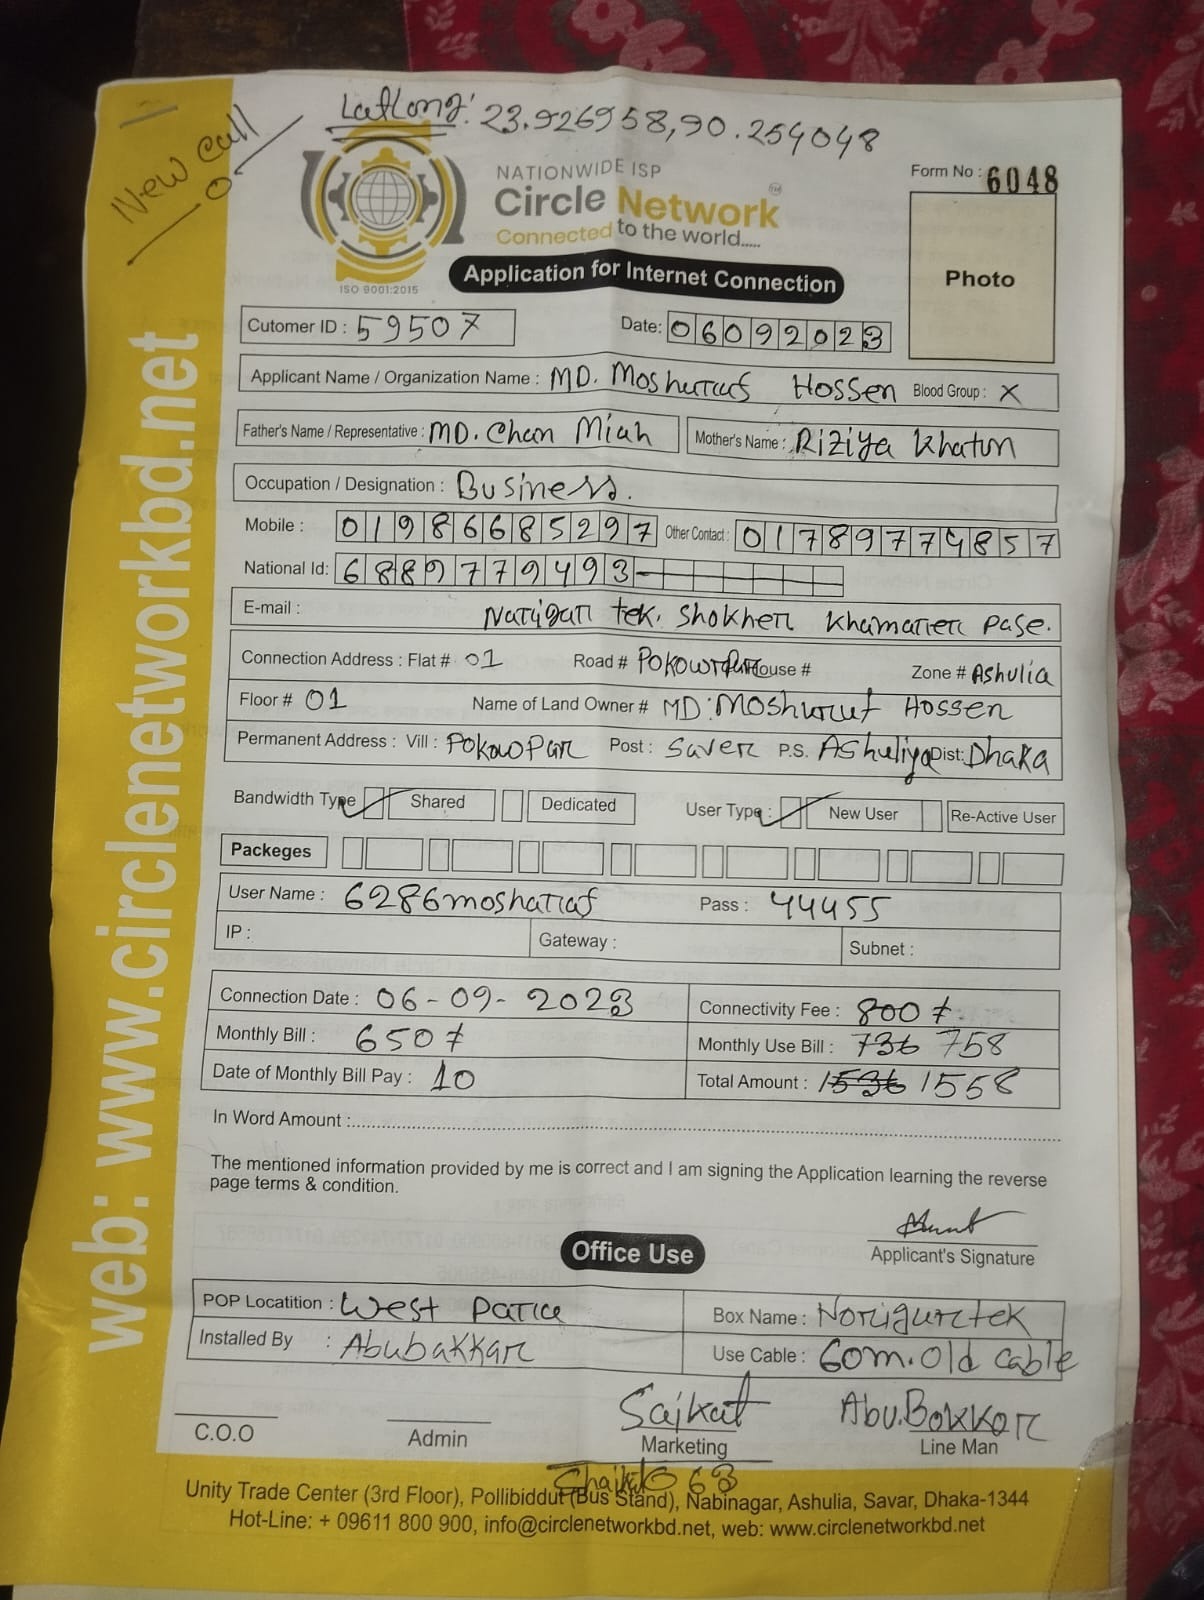 New Call
LatLong: 23.926958,90.254048
NATIONWIDE ISP
Circle Network TM
Connected to the world.....
ISO 9001:2015
Form No : 6048
Photo
Application for Internet Connection
Cutomer ID : 59507 Date: 06092023
Applicant Name / Organization Name : MD. Mosharraf Hossen Blood Group : X
Father's Name / Representative : MD. Chan Miah Mother's Name : Riziya Khatun
Occupation / Designation : Business.
Mobile : 01986685297 Other Contact : 01789774857
National Id: 6889779493
E-mail : Narigar tek. Shokher Khamarer Pase.
Connection Address : Flat # 01 Road # House # Zone # Ashulia
Floor # 01 Name of Land Owner # MD: Moshurut Hossen
Permanent Address : Vill : Pokowpar Post : Saver P.S. Ashuliya Dist: Dhaka
Bandwidth Type Shared Dedicated User Type : New User Re-Active User
Packeges
User Name : 6286mosharaf Pass : 44455
IP : Gateway : Subnet :
Connection Date : 06-09-2023 Connectivity Fee : 800/-
Monthly Bill : 650/- Monthly Use Bill : 736 758
Date of Monthly Bill Pay : 10 Total Amount : 1536 1558
In Word Amount :
The mentioned information provided by me is correct and I am signing the Application learning the reverse
page terms & condition.
Applicant's Signature
Office Use
POP Locatition : West Parra Box Name : Norigurtek
Installed By : Abubakkar Use Cable : 60m. Old Cable
Saikat Abu.Bokkor
C.O.O Admin Marketing Line Man
63
Unity Trade Center (3rd Floor), Pollibiddut (Bus Stand), Nabinagar, Ashulia, Savar, Dhaka-1344
Hot-Line: + 09611 800 900, info@circlenetworkbd.net, web: www.circlenetworkbd.net
web: www.circlenetworkbd.net